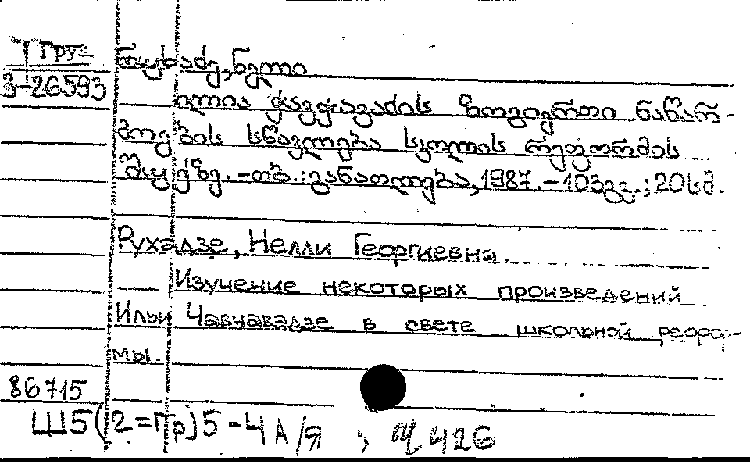 Т Груз
3-26593
რუხაძე, ნელი
ილია ჭავჭავაძის ზოგიერთი ნაწარ-
მოების სწავლება სკოლის რეფორმის
შუქზე. - თბ.: განათლება, 1987. - 103გვ.; 20სმ.
Рухадзе, Нелли Георгиевна.
Изучение некоторых произведений
Ильи Чавчавадзе в свете школьной рефор-
мы.
86715
Ш5(2=Гр)5-4 А/Я , Ч 426